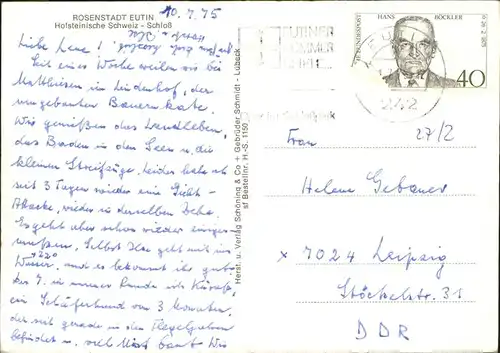 ROSENSTADT EUTIN
Holsteinische Schweiz - Schloß
10.7.75
Liebe Lene!
Seit eine Woche weilen wir bei
Matthiesen in, der
umgebauten Bauernkate.
Wir genießen das Landleben,
das Baden in den Seen u. die
kleinen Streifzüge. Leider habe ich
seit 3 Tagen wieder eine Gicht-
Attacke, wieder in derselben Zehe.
Es geht aber schon wieder einiger-
maßen. Selbst Ilse geht mit ins
Wasser, +220 und es bekommt ihr gut.
Das 7. in unserer Runde ist
ein Schäferhund von 3 Monaten,
der sich gerade in den Flegeljahren
befindet u. viel
Herst. u. Verlag Schöning & Co + Gebrüder Schmidt - Lübeck
sf Bestellnr. H.-S. 1150
EUTINER
SOMMER
SPIELE
EUTIN
242
DEUTSCHE BUNDESPOST
HANS BÖCKLER
40
27/2
Frau
Helene Gebauer
x 7024 Leipzig
Stöckelstr. 31
DDR